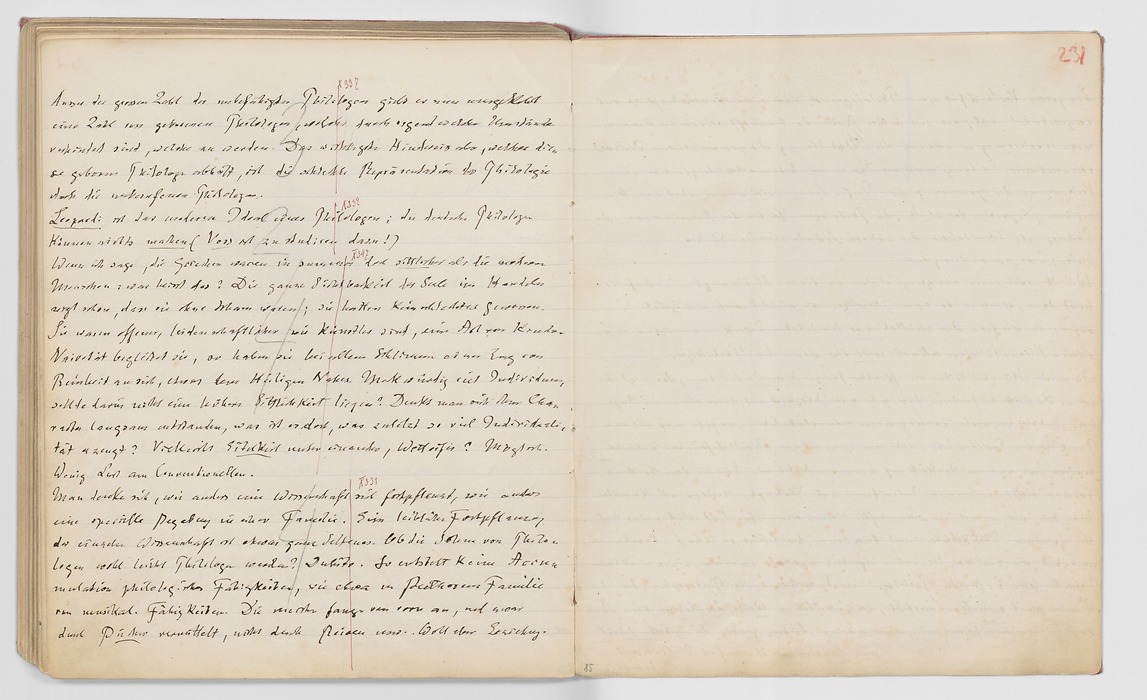 X337
Ausser der grossen Zahl der unbefähigten Philologen giebt es nun umgekehrt
eine Zahl von geborenen Philologen, welche durch irgend welche Umstände
verhindert sind, welche zu werden. Das wichtigste Hinderniss aber, welches die-
se geborenen Philologen abhält, ist die schlechte Repräsentation der Philologie
durch die unberufenen Philologen.
Leopardi ist das moderne Ideal eines Philologen; die deutschen Philologen
können nichts machen (Voss ist zu studiren dazu!)
Wenn ich sage, die Griechen waren in summa doch sittlicher als die modernen
Menschen: was heisst das? Die ganze Sichtbarkeit der Seele im Handeln
zeigt schon, dass sie ohne Scham waren; sie hatten kein schlechtes Gewissen.
Sie waren offener, leidenschaftlicher wie Künstler sind, eine Art von Kinder-
Naivetät begleitet sie, so haben sie bei allem Schlimmen etwas von
Reinheit an sich, etwas dem Heiligen Nahes. Merkwürdig viel Individuum,
sollte darin nicht eine höhere Sittlichkeit liegen? Denkt man sich ihren Cha-
racter langsam entstanden, was ist es doch, was zuletzt so viel Individuali-
tät erzeugt? Vielleicht Eitelkeit unter einander, Wetteifer? Möglich.
Wenig Lust am Conventionellen.
Man denke sich, wie anders eine Wissenschaft sich fortpflanzt, wie anders
eine specielle Begabung in einer Familie. Eine leibliche Fortpflanzung
der einzelnen Wissenschaft ist etwas ganz Seltenes. Ob die Söhne von Philo-
logen wohl leicht Philologen werden? Dubito. So entsteht keine Accu-
mulation philologischer Fähigkeiten, wie etwa in Beethovens Familie
von musikal. Fähigkeiten. Die meisten fangen von vorn an, und zwar
durch Bücher vermittelt, nicht durch Reisen usw. Wohl aber Erziehung.
231
85